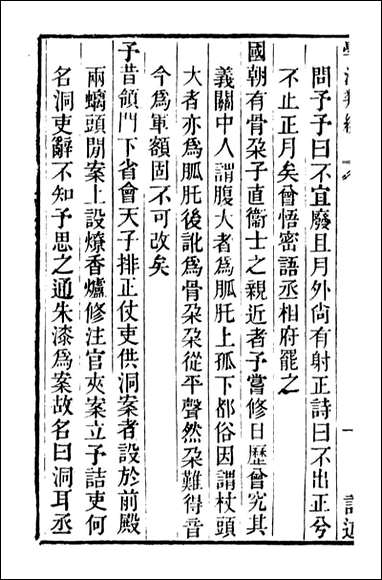 問予予曰不宜廢且月外尙有射正詩曰不出正兮
不止正月矣曾悟密語丞相府罷之
國朝有骨朶子直衞士之親近者予嘗修日歷曾究其
義關中人謂腹大者爲胍肛上孤下都俗因謂杖頭
大者亦爲胍肛後訛爲骨朶朶從平聲然朶難得音
今爲軍額固不可改矣
予昔領門下省會天子排正仗吏供洞案者設於前殿
兩螭頭閒案上設燎香爐修注官夾案立予詰吏何
名洞吏辭不知予思之通朱漆爲案故名曰洞耳丞